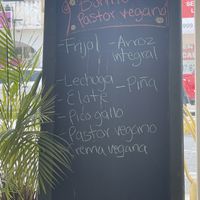 Burrito
Pastor vegano
-Frijol - Arroz
integral
-Lechuga
-Elote -Piña
-Pico gallo
-Pastor vegano
-Crema vegana